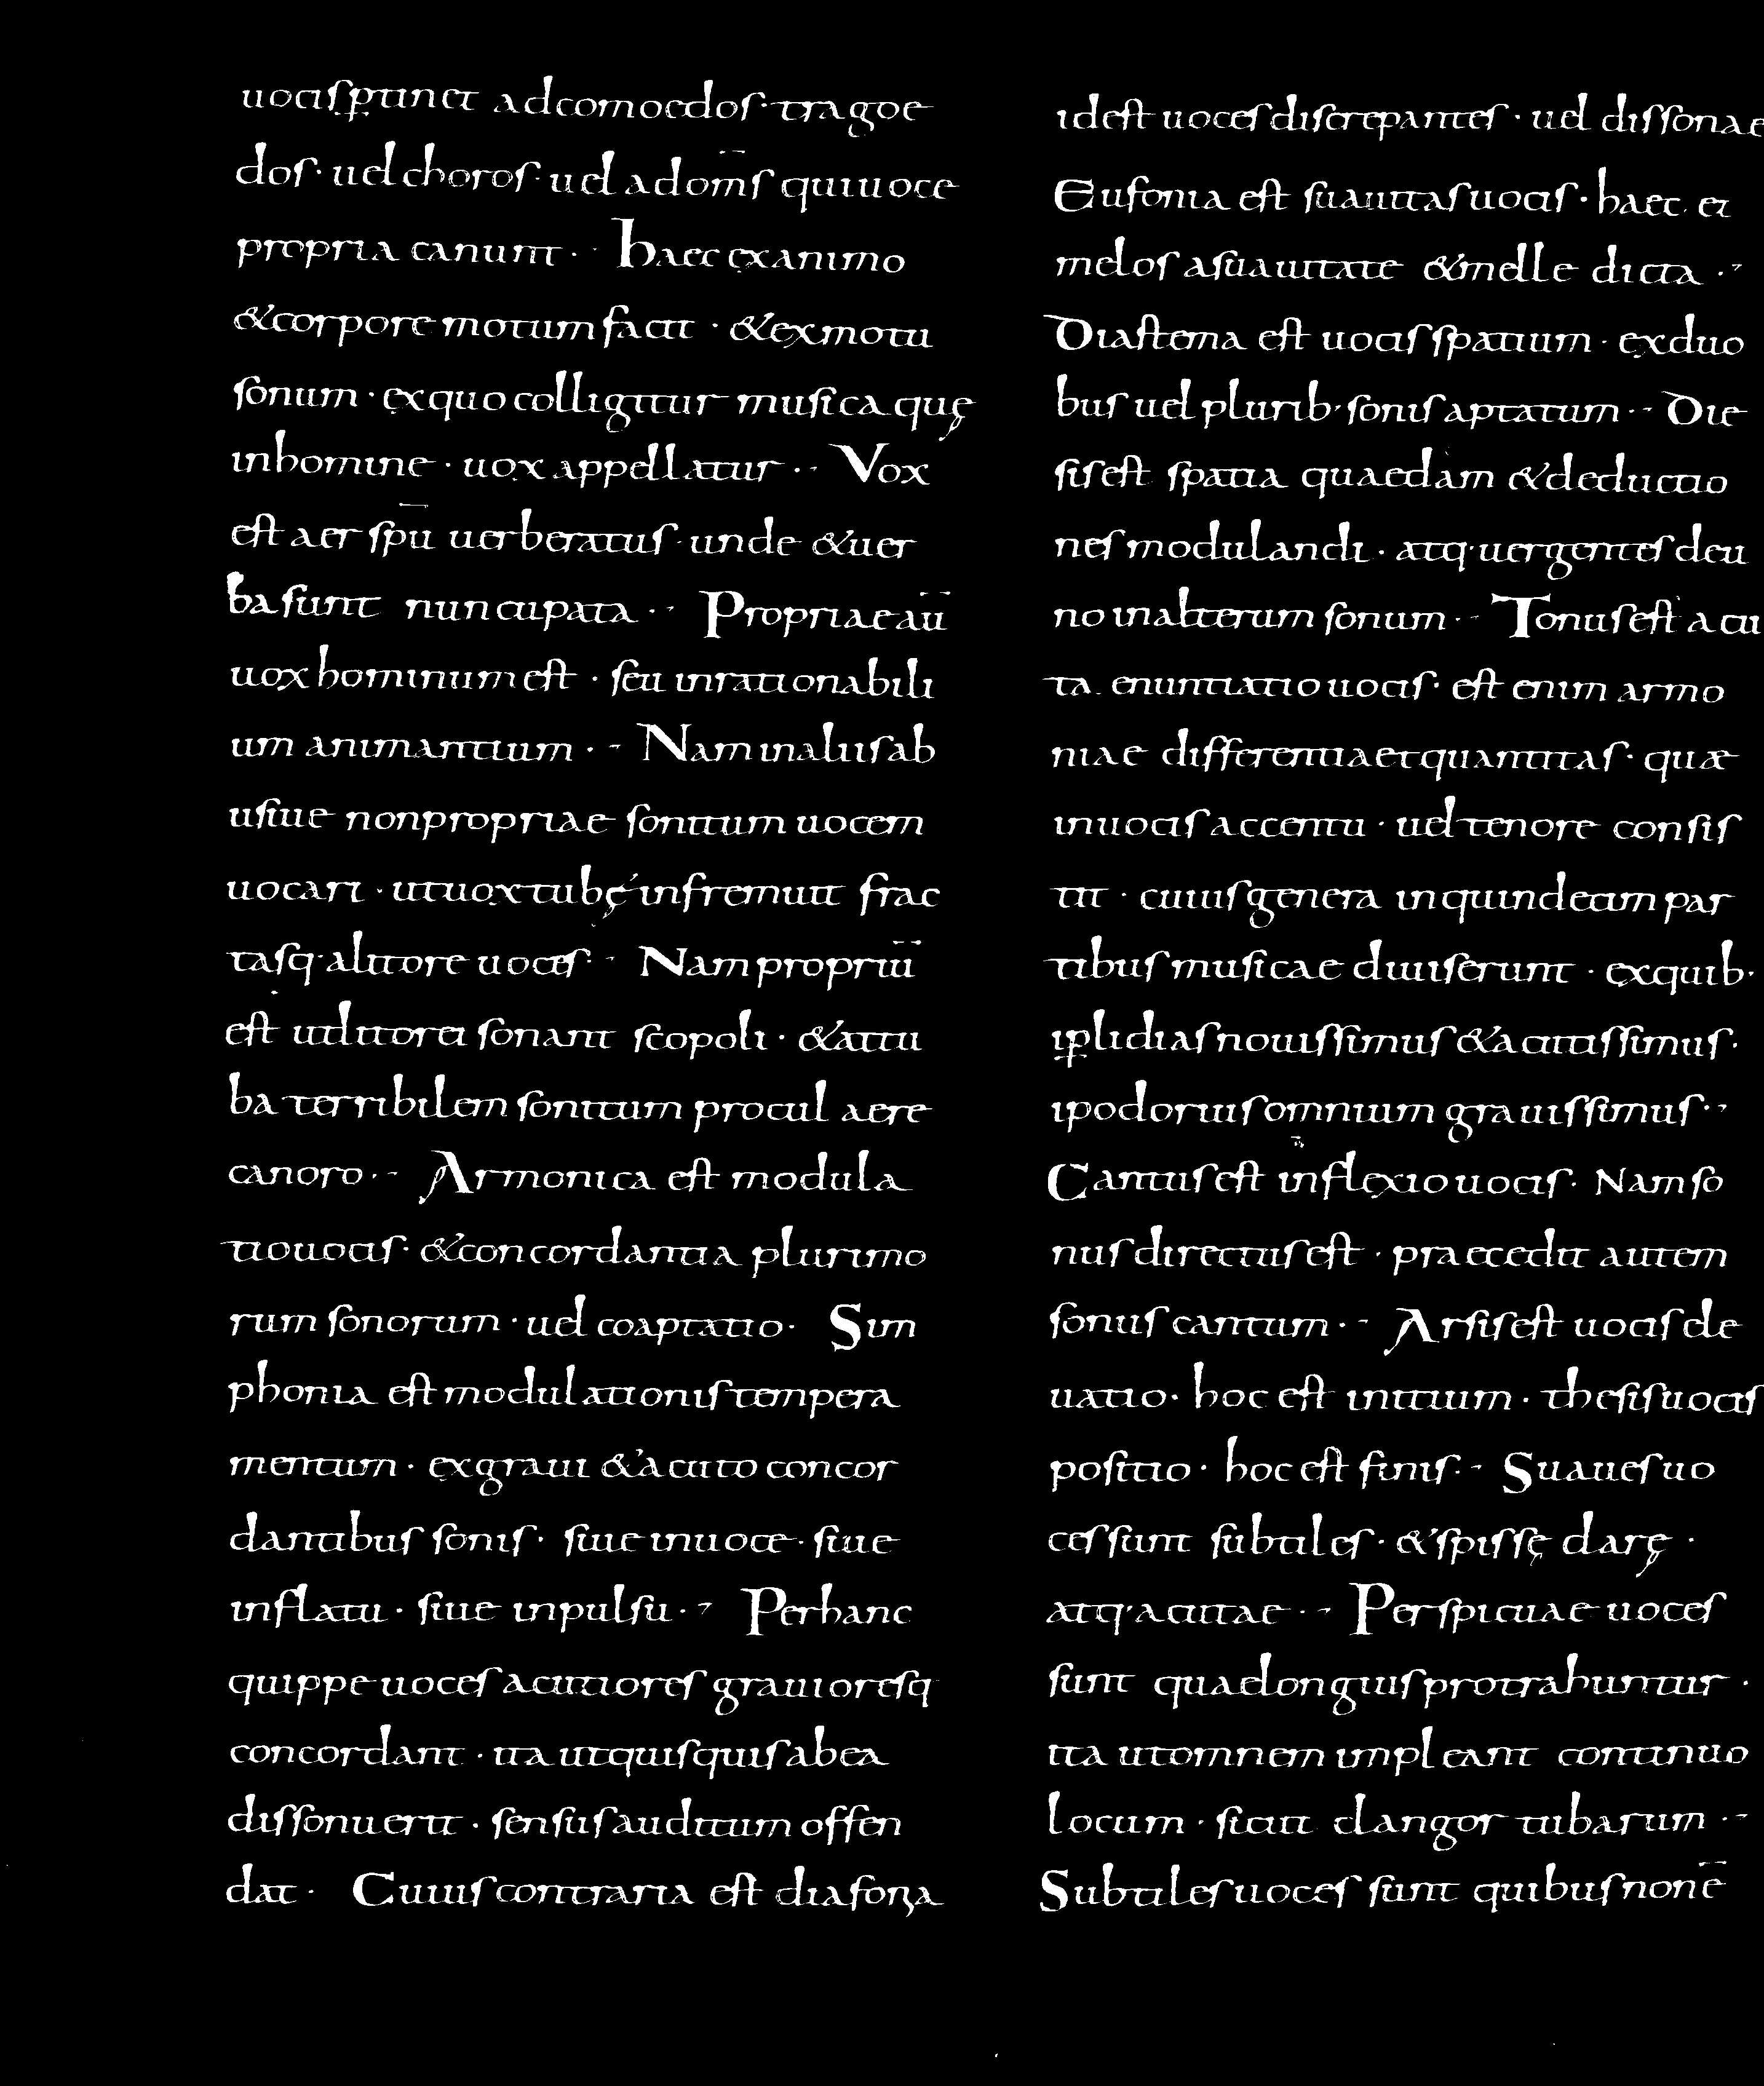 uocis ꝑtinet ad comoedos · tragoe
dos · uel choros · uel ad om̄s qui uoce
propria canunt · Haec ex animo
& corpore motum facit · & ex motu
sonum · ex quo colligitur musica quę
in homine · uox appellatur · Vox
est aer spū uerberatus · unde & uer
ba sunt nuncupata · Propriae aū
uox hominum est · seu inrationabili
um animantium · Nam in aliis ab
usiue non propriae sonitum uocem
uocari · ut uox tubę infremuit frac
tasq· a litore uoces · Nam propriū
est ut litorei sonant scopoli · & at tu
ba terribilem sonitum procul aere
canoro · Armonica est modula
tio uocis · & concordantia plurimo
rum sonorum · uel coaptatio · Sim
phonia est modulationis tempera
mentum · ex graui & acuto concor
dantibus sonis · siue in uoce · siue
in flatu · siue in pulsu · Per hanc
quippe uoces acutiores grauioresq
concordant · ita ut quisquis ab ea
dissonuerit · sensus auditum offen
dat · Cuius contraria est diafonia
id est uoces discrepantes · uel dissonae
Eufonia est suauitas uocis · haec et
melos a suauitate & melle dicta ·
Diastema est uocis spatium · ex duo
bus uel plurib· sonis aptatum · Die
sis est spatia quaedam & deductio
nes modulandi · atq· uergentes de u
no in alterum sonum · Tonus est acu
ta enuntiatio uocis · est enim armo
niae differentia et quantitas · quae
in uocis accentu · uel tenore consis
tit · cuius genera in quindecim par
tibus musicae diuiserunt · ex quib·
iꝑlidias nouissimus & acutissimus ·
ipodorius omnium grauissimus ·
Cantus est inflexio uocis · Nam so
nus directus est · praecedit autem
sonus cantum · Arsis est uocis ele
uatio · hoc est initium · thesis uocis
positio · hoc est finis · Suaues uo
ces sunt subtiles · & spissę clarę ·
atq· acutae · Perspicuae uoces
sunt quae longius protrahuntur ·
ita ut omnem impleant continuo
locum · sicut clangor tubarum ·
Subtiles uoces sunt quibus non ē